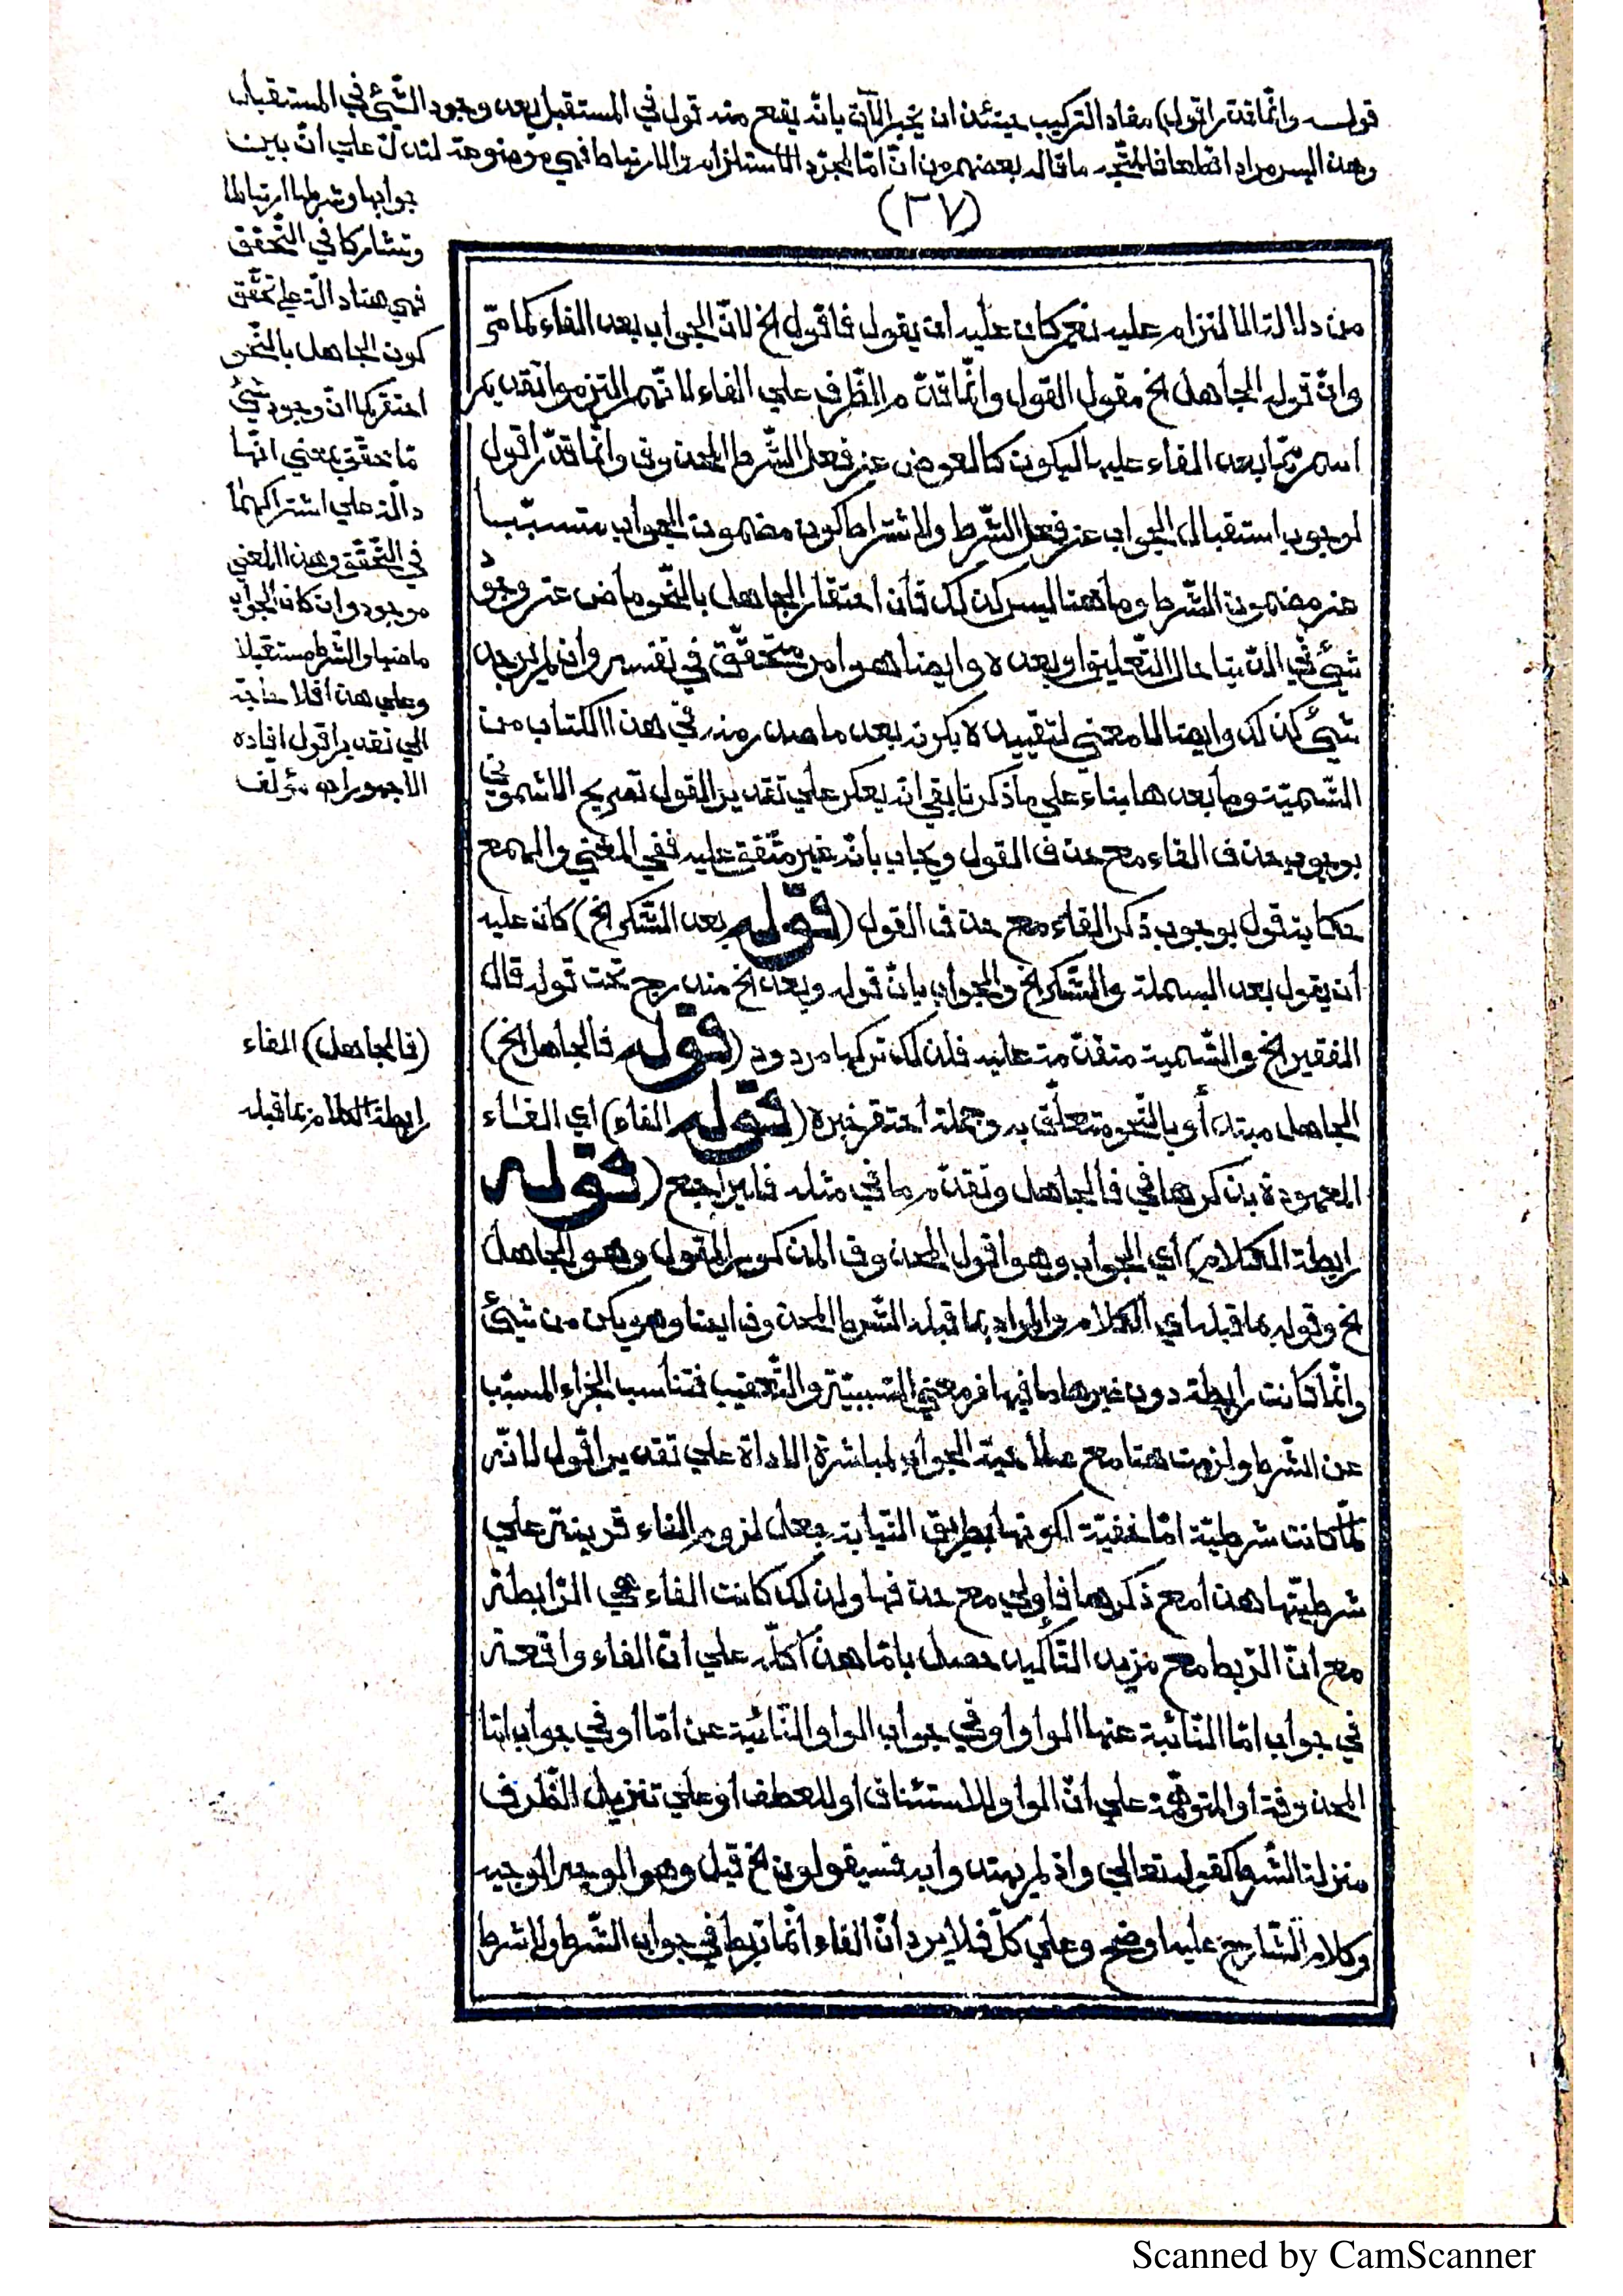 قوله وانّما قدّر اقول) مفاد التركيب حينئذ ان يخبر الآن بانّه يقع منه قول في المستقبل بعد وجود الشّيئ في المستقبل
وهذا ليس مرادا قطعا فالمتّجه ما قاله بعضهم من انّ امّا لمجرّد الاستلزام والارتباط فهي موضوعة لتدلّ علي انّ بين
جوابها وشرطها ارتباطا
وتشاركا في التّحقق
فهي هنا دالّة علي تحقّق
كون الجاهل بالنّحو
احتقر كما انّ وجود شيئ
مّا تحقّق بمعني انّها
دالّة علي اشتراكهما
في التّحقّق وهذا المعني
موجود وان كان الجواب
ماضيا والشّرط مستقبلا
وعلي هذا فلا حاجة
الي تقدير اقول افاده
الاجهوراه مؤلف
(٣٧)
من دلالة الالتزام عليه نعم كان عليه ان يقول فاقول الخ لانّ الجواب بعد الفاء كما مرّ
وانّ قوله الجاهل الخ مقول القول وانّما قدّم الظّرف علي الفاء لانّهم التزموا تقديم
اسم مّا بعد الفاء عليها ليكون كالعوض عن فعل الشّرط المحذوف وانّما قدّر اقول
لوجوب استقبال الجواب عن فعل الشّرط ولاشتراط كون مضمون الجواب متسبّبا
عن مضمون الشّرط وما هنا ليس كذلك فأن احتقار الجاهل بالنّحو ماض عن وجود
شيئ في الدّنيا حال التّعليق او بعده وايضا هو امر متحقّق في نفسه وان لم يوجد
شيئ كذلك وايضا لا معني لتقييده بكونه بعد ما صدر منه في هذا الكتاب من
التّسمية وما بعدها بناء علي ما ذكرنا بقي انه يعكر علي تقدير القول تصريح الاشموني
بوجوب حذف الفاء مع حذف القول ويجاب بأنّه غير متّفق عليه ففي المغني والهمع
حكاية قول بوجوب ذكر الفاء مع حذف القول (قوله بعد الشّكر الخ) كان عليه
أن يقول بعد البسملة والشّكر الخ والجواب بانّ قوله وبعد الخ مندرج تحت قوله قال
الفقير الخ والتّسمية متقدّمة عليه فلذلك تركها مردود (قوله فالجاهل الخ)
الجاهل مبتدأ وبالنّحو متعلّق به وجملة احتقر خبره (قوله الفاء) أي الفاء
المعهودة بذكرها في فالجاهل وتقدّم ما في مثله فليراجع (قوله
رابطة الكلام) أي الجواب وهو اقول المحذوف المذكور المقول وهو الجاهل
الخ وقوله بما قبله أي الكلام والمراد بما قبله الشّرط المحذوف ايضا وهو يكن من شيئ
وانّما كانت رابطة دون غيرها لما فيها من معني السّببيّة والتّعقيب فتناسب الجزاء المسبّب
عن الشّرط ولزمت هنا مع صلاحيّة الجواب لمباشرة الاداة علي تقدير اقول لانّه
لمّا كانت شرطيّة امّا خفيّة لكونها بطريق النّيابة جعل لزوم الفاء قرينة علي
شرطيّتها هذا مع ذكرها فاولي مع حذفها ولذلك كانت الفاء هي الرّابطة
مع انّ الرّبط مع مزيد التّأكيد حصل بامّا هذا كلّه علي انّ الفاء واقعة
في جواب امّا النّائبة عنها الواو او في جواب الواو النّائبة عن امّا او في جواب امّا
المحذوفة او المتوهّمة علي انّ الواو للاستئناف او للعطف او علي تنزيل الظّرف
منزلة الشّرط كقوله تعالي واذ لم يهتدوا به فسيقولون الخ قيل وهو الوجه الوجيه
وكلام الشّارح عليه اوضح وعلي كلّ فلا يرد انّ الفاء انّما تربط في جواب الشّرط ولا شرط
(فالجاهل) الفاء
رابطة الكلام بما قبله
Scanned by CamScanner